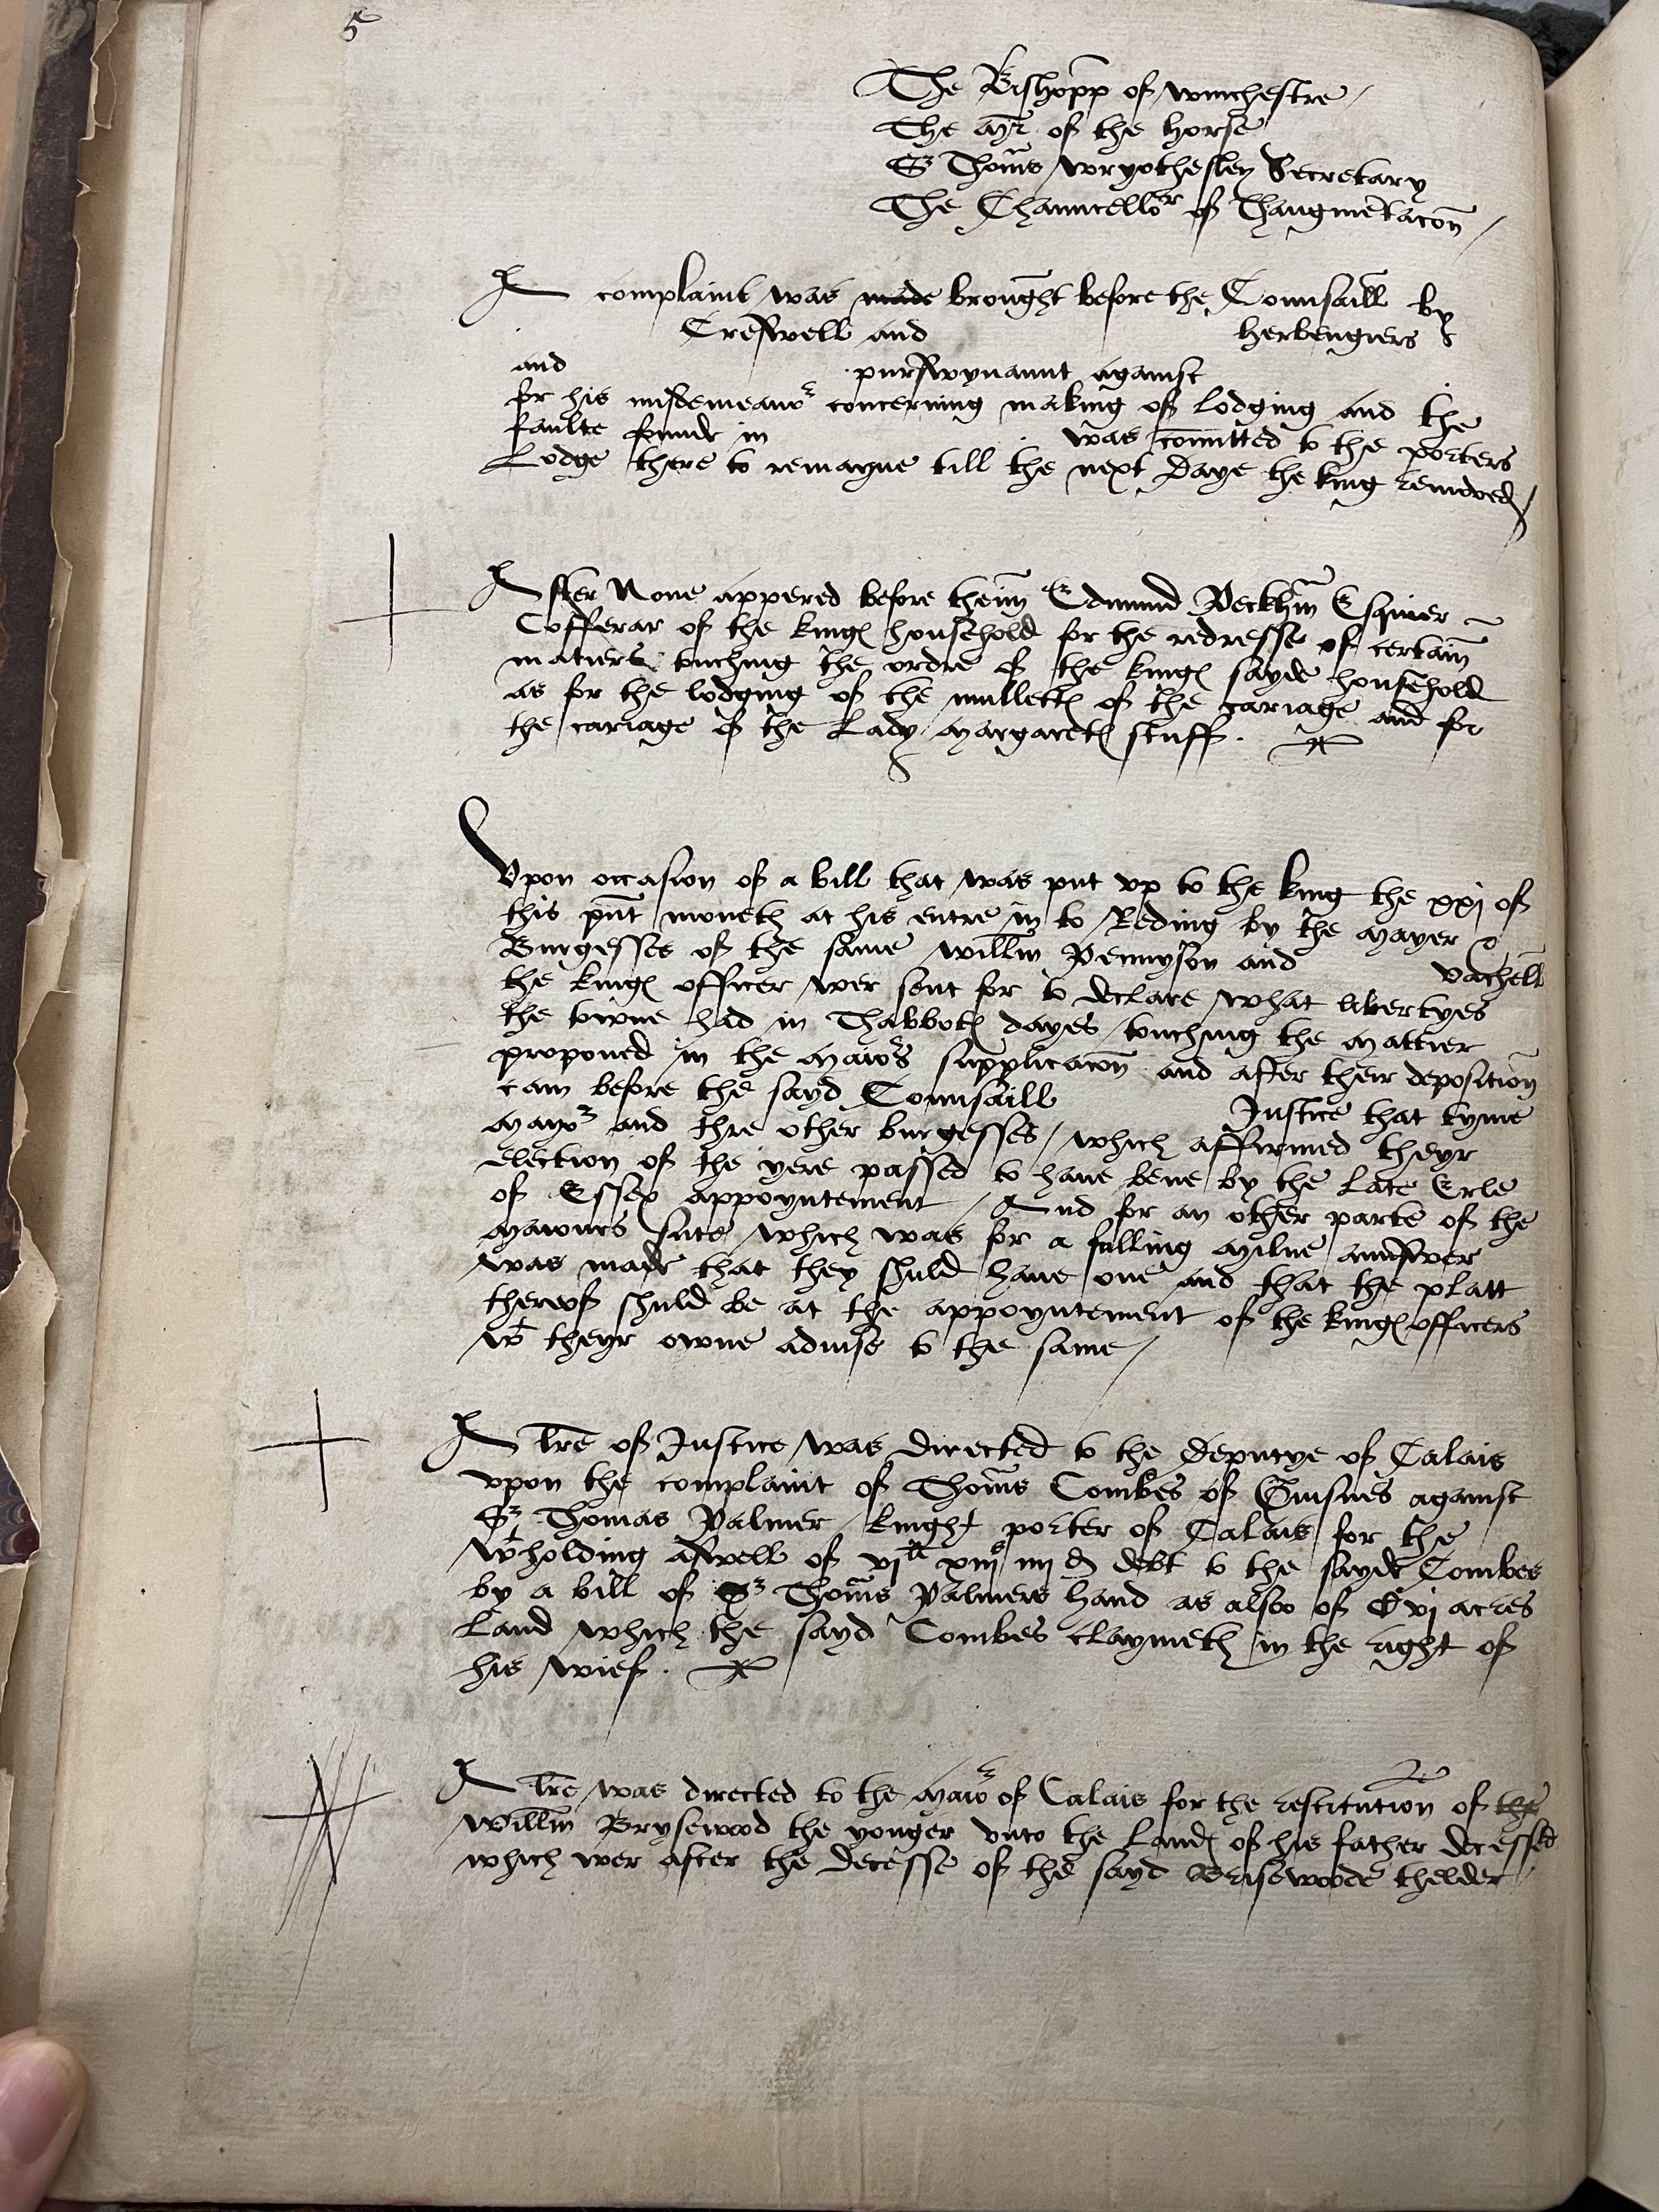 5
The Bishopp of Winchestre /
The Mr. of the horse
Sr Thom̃s Wryothesley Secretary
The Chauncellor of Thaugmẽtacon̄ /
A complaint was made brought before the Counsaill by
Creswell and herbengiers
and purswynaunt against
for his misdemeanor concerning making of lodging and the
faulte founde in was com̄itted to the porters
Lodge there to remayne till the next daye the king removed /
After None appered before theim̄ Edmund Peckhm̄ Esquier
Cofferar of the kinges household for the redresse of certain̄
matiers touching the ordre of the kinges sayde household
as for the lodging of the mulletes of the cariage and for
the cariage of the Lady Margaretes stuff .
Vpon occasion of a bill that was put vp to the king the xxj of
this pn̄t moneth at his entre in to Reding by the Mayer &
Burgesses of the same Willm̄ Pennyson and Vachell
the kinges officer wer sent for to declare what libertyes
the towne had in Thabbotes dayes touching the mattier
proponed in the Maiors supplicacon̄ and after their deposition̄
cam before the sayd Counsaill Justice that tyme
Mayor and thre other burgesses / which affirmed theyr
Election of the yere passed to haue bene by the late Erle
of Essex appoyntement / And for an other parte of the
Maiours sute which was for a fulling Milne aunswer
was made that they shuld haue one and that the platt
therof shuld be at the appoyntement of the kinges officers
wt theyr owne aduise to the same /
A lr̃e of Justice was directed to the deputye of Calais
vpon the complaint of Thom̃s Combes of Guisnes against
Sr Thomas Palmer knight porter of Calais for the
wtholding aswell of vjli xiijs iiijd debt to the sayde Combes
by a bill of Sr Thom̃s Palmers hand as also of Cvj acres
Land which the sayd Combes claymeth in the right of
his wief .
A lr̃e was directed to the Maior of Calais for the restitution of the
Willm̄ Brysewood the yonger vnto the landes of his father decessed
which wer after the decesse of the sayd Brisewoode thelder